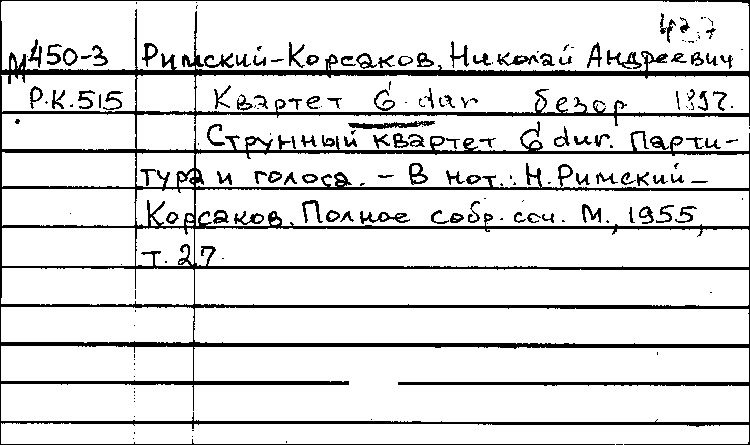 М450-3 Римский-Корсаков, Николай Андреевич
Р.К.515 Квартет G dur без ор 1897.
Струнный квартет G dur. Парти-
тура и голоса. – В нот.: Н. Римский-
Корсаков. Полное собр. соч. М., 1955,
т. 27